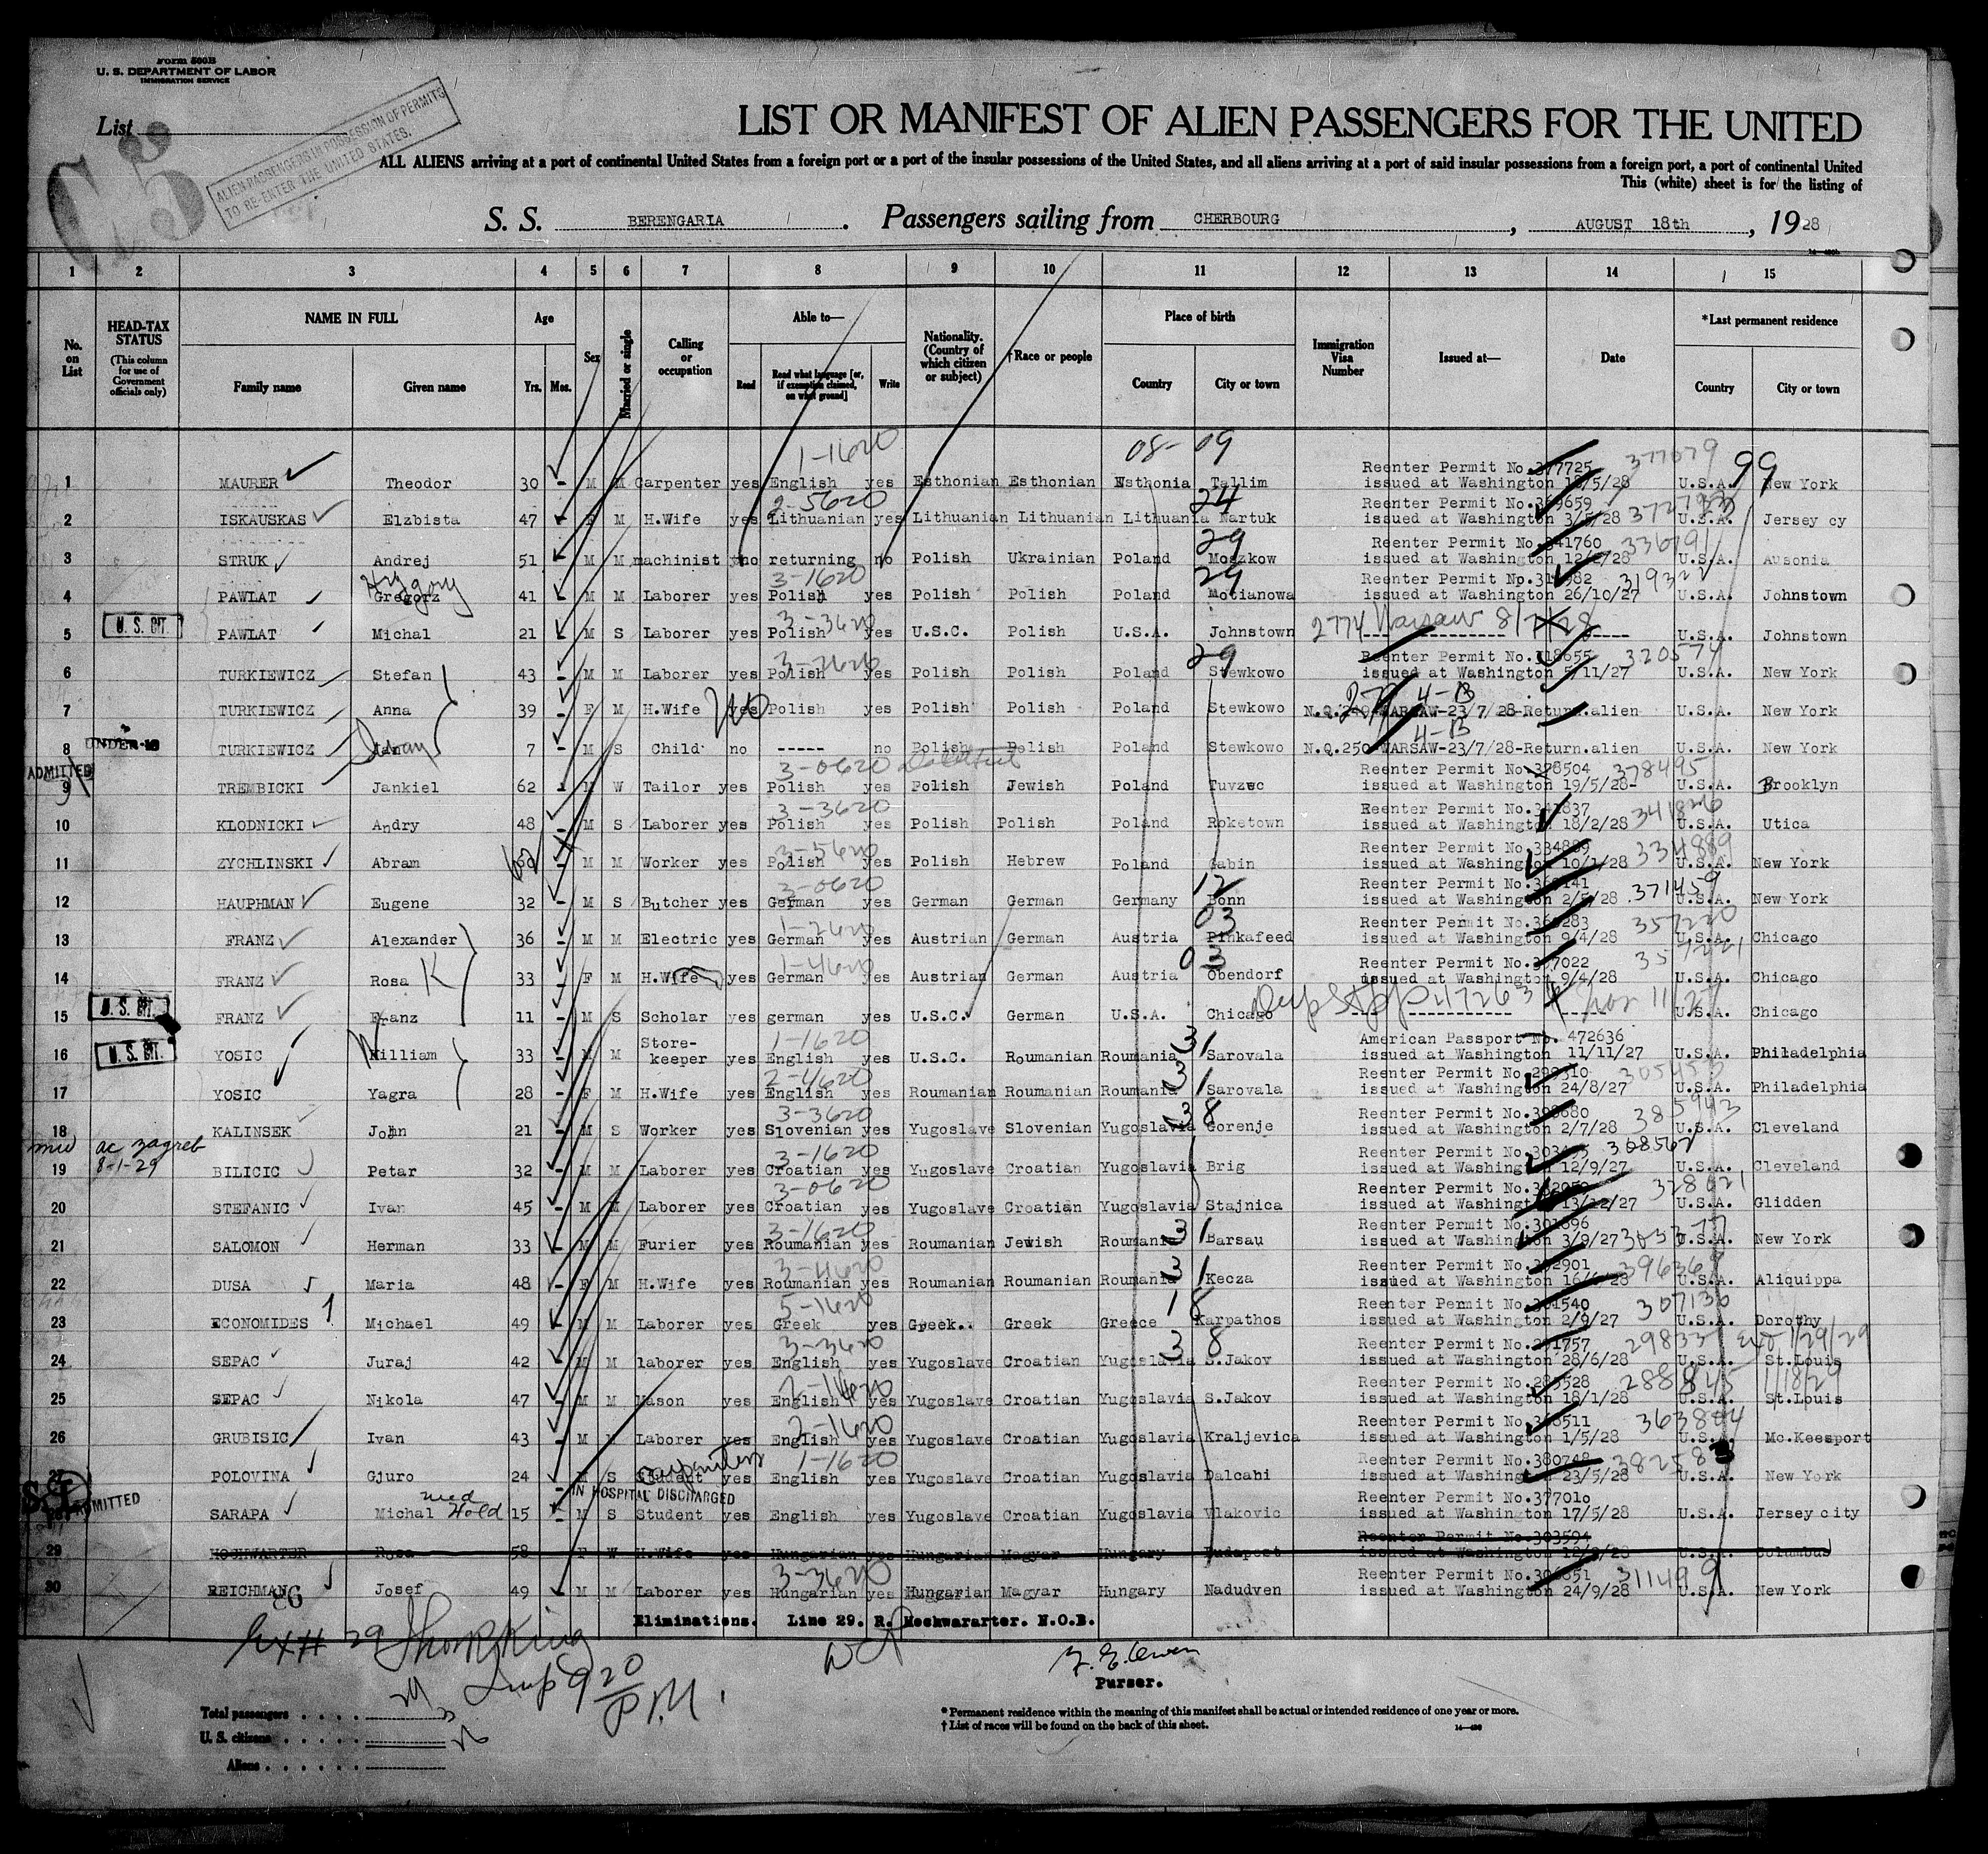 Form 500B
U. S. DEPARTMENT OF LABOR
IMMIGRATION SERVICE
List
ALIEN PASSENGERS IN POSSESSION OF PERMITS
TO RE-ENTER THE UNITED STATES.
LIST OR MANIFEST OF ALIEN PASSENGERS FOR THE UNITED
ALL ALIENS arriving at a port of continental United States from a foreign port or a port of the insular possessions of the United States, and all aliens arriving at a port of said insular possessions from a foreign port, a port of continental United
This (white) sheet is for the listing of
S. S. BERENGARIA. Passengers sailing from CHERBOURG, AUGUST 18th, 1928
1 2 3 4 5 6 7 8 9 10 11 12 13 14 15
No. on List
HEAD-TAX STATUS (This column for use of Government officials only)
NAME IN FULL Family name Given name
Age Yrs. Mos.
Sex
Married or single
Calling or occupation
Able to— Read Read what language [or, if exemption claimed, on what ground] Write
Nationality. (Country of which citizen or subject)
†Race or people
Place of birth Country City or town
Immigration Visa Number
Issued at—
Date
*Last permanent residence Country City or town
1-1620 08-09 Reenter Permit No. 377725 377079 99
1 MAURER Theodor 30 - M M Carpenter yes English yes Esthonian Esthonian Esthonia Tallim issued at Washington 18/5/28 U.S.A. New York
2-5620 24 Reenter Permit No.
2 ISKAUSKAS Elzbista 47 - F M H.Wife yes Lithuanian yes Lithuanian Lithuanian Lithuania Nartuk issued at Washington 3/5/28 U.S.A. Jersey cy
29 Reenter Permit No.341760 336791
3 STRUK Andrej 51 - M M machinist no returning no Polish Ukrainian Poland Moszkow issued at Washington U.S.A. Ausonia
Hrygory 3-1620 29 Reenter Permit No. 319322
4 PAWLAT Gregorz 41 - M M Laborer yes Polish yes Polish Polish Poland Motianowa issued at Washington 26/10/27 U.S.A. Johnstown
U.S. CIT. 3-3620
5 PAWLAT Michal 21 - M S Laborer yes Polish yes U.S.C. Polish U.S.A. Johnstown 2774 Warsaw U.S.A. Johnstown
29 Reenter Permit No.318655 320574
6 TURKIEWICZ Stefan 43 - M M Laborer yes Polish yes Polish Polish Poland Stewkowo issued at Washington 5/11/27 U.S.A. New York
no 4-B
7 TURKIEWICZ Anna 39 - F M H.Wife yes Polish yes Polish Polish Poland Stewkowo N.Q.249 WARSAW-23/7/28-Return.alien U.S.A. New York
UNDER-16 4-B
8 TURKIEWICZ 7 - M S Child no ----- no Polish Polish Poland Stewkowo N.Q.250 WARSAW-23/7/28-Return.alien U.S.A. New York
ADMITTED 3-0620 Reenter Permit No.378504 378495
9 TREMBICKI Jankiel 62 - M W Tailor yes Polish yes Polish Jewish Poland Tuvzec issued at Washington 19/5/28- U.S.A. Brooklyn
3-3620 Reenter Permit No.341837 341826
10 KLODNICKI Andry 48 - M S Laborer yes Polish yes Polish Polish Poland Roketown issued at Washington 18/2/28 U.S.A. Utica
3-5620 Reenter Permit No.334889 334889
11 ZYCHLINSKI Abram - M M Worker yes Polish yes Polish Hebrew Poland Gabin issued at Washington 10/1/28 U.S.A. New York
3-0620 12 Reenter Permit No. 371459
12 HAUPHMAN Eugene 32 - M S Butcher yes German yes German German Germany Bonn issued at Washington 2/5/28 U.S.A. New York
1-2620 03 Reenter Permit No.360283 357220
13 FRANZ Alexander 36 - M M Electric yes German yes Austrian German Austria Pinkafeed issued at Washington 9/4/28 U.S.A. Chicago
1-4620 03 Reenter Permit No. 357221
14 FRANZ Rosa K 33 - F M H.Wife yes German yes Austrian German Austria Obendorf issued at Washington 9/4/28 U.S.A. Chicago
U.S. CIT.
15 FRANZ Franz 11 - M S Scholar yes german yes U.S.C. German U.S.A. Chicago U.S.A. Chicago
U.S. CIT. Store- 1-1620 31 American Passport No. 472636
16 YOSIC William 33 - M M keeper yes English yes U.S.C. Roumanian Roumania Sarovala issued at Washington 11/11/27 U.S.A. Philadelphia
2-4620 31 Reenter Permit No. 305453
17 YOSIC Yagra 28 - F M H.Wife yes English yes Roumanian Roumanian Roumania Sarovala issued at Washington 24/8/27 U.S.A. Philadelphia
3-3620 38 Reenter Permit No. 385943
18 KALINSEK John 21 - M S Worker yes Slovenian yes Yugoslave Slovenian Yugoslavia Gorenje issued at Washington 2/7/28 U.S.A. Cleveland
ac Zagreb 8-1-29 3-1620 Reenter Permit No. 308567
19 BILICIC Petar 32 - M M Laborer yes Croatian yes Yugoslave Croatian Yugoslavia Brig issued at Washington 12/9/27 U.S.A. Cleveland
3-0620 Reenter Permit No. 328021
20 STEFANIC Ivan 45 - M M Laborer yes Croatian yes Yugoslave Croatian Yugoslavia Stajnica issued at Washington 13/12/27 U.S.A. Glidden
3-1620 31 Reenter Permit No.301896 305377
21 SALOMON Herman 33 - M M Furier yes Roumanian yes Roumanian Jewish Roumania Barsau issued at Washington 3/9/27 U.S.A. New York
3-4620 31 Reenter Permit No.392901 396369
22 DUSA Maria 48 - F M H.Wife yes Roumanian yes Roumanian Roumanian Roumania Kecza issued at Washington 16/6/28 U.S.A. Aliquippa
5-1620 18 Reenter Permit No.301540 307136
23 ECONOMIDES Michael 49 - M M Laborer yes Greek yes Greek.. Greek Greece Karpathos issued at Washington 2/9/27 U.S.A. Dorothy
3-3620 38 Reenter Permit No. 1/29/29
24 SEPAC Juraj 42 - M M laborer yes English yes Yugoslave Croatian Yugoslavia S.Jakov issued at Washington 28/6/28 U.S.A. St.Louis
2-1620 Reenter Permit No. 288845 1/18/29
25 SEPAC Nikola 47 - M M Mason yes English yes Yugoslave Croatian Yugoslavia S.Jakov issued at Washington 18/1/28 U.S.A. St.Louis
2-1620 Reenter Permit No. 363804
26 GRUBISIC Ivan 43 - M M Laborer yes English yes Yugoslave Croatian Yugoslavia Kraljevica issued at Washington 1/5/28 U.S.A. Mc.Keesport
1-1620 Reenter Permit No.380748 382583
27 POLOVINA Gjuro 24 - M S Student yes English yes Yugoslave Croatian Yugoslavia Dalcahi issued at Washington 23/5/28 U.S.A. New York
S.I. ADMITTED med Hold IN HOSPITAL DISCHARGED Reenter Permit No.377010
28 SARAPA Michal 15 - M S Student yes English yes Yugoslave Croatian Yugoslavia Vlakovic issued at Washington 17/5/28 U.S.A. Jersey city
Reenter Permit No.303594
29 HOCHWARTER Rosa 58 - F W H.Wife yes Hungarian yes Hungarian Magyar Hungary Budapest issued at Washington U.S.A. Columbus
3-3620 Reenter Permit No. 311499
30 REICHMANG Josef 49 - M M Laborer yes Hungarian yes Hungarian Magyar Hungary Nadudven issued at Washington 24/9/28 U.S.A. New York
Eliminations. Line 29. R. Hochwararter. N.O.B.
Purser.
Total passengers
U. S. citizens
Aliens
* Permanent residence within the meaning of this manifest shall be actual or intended residence of one year or more.
† List of races will be found on the back of this sheet.